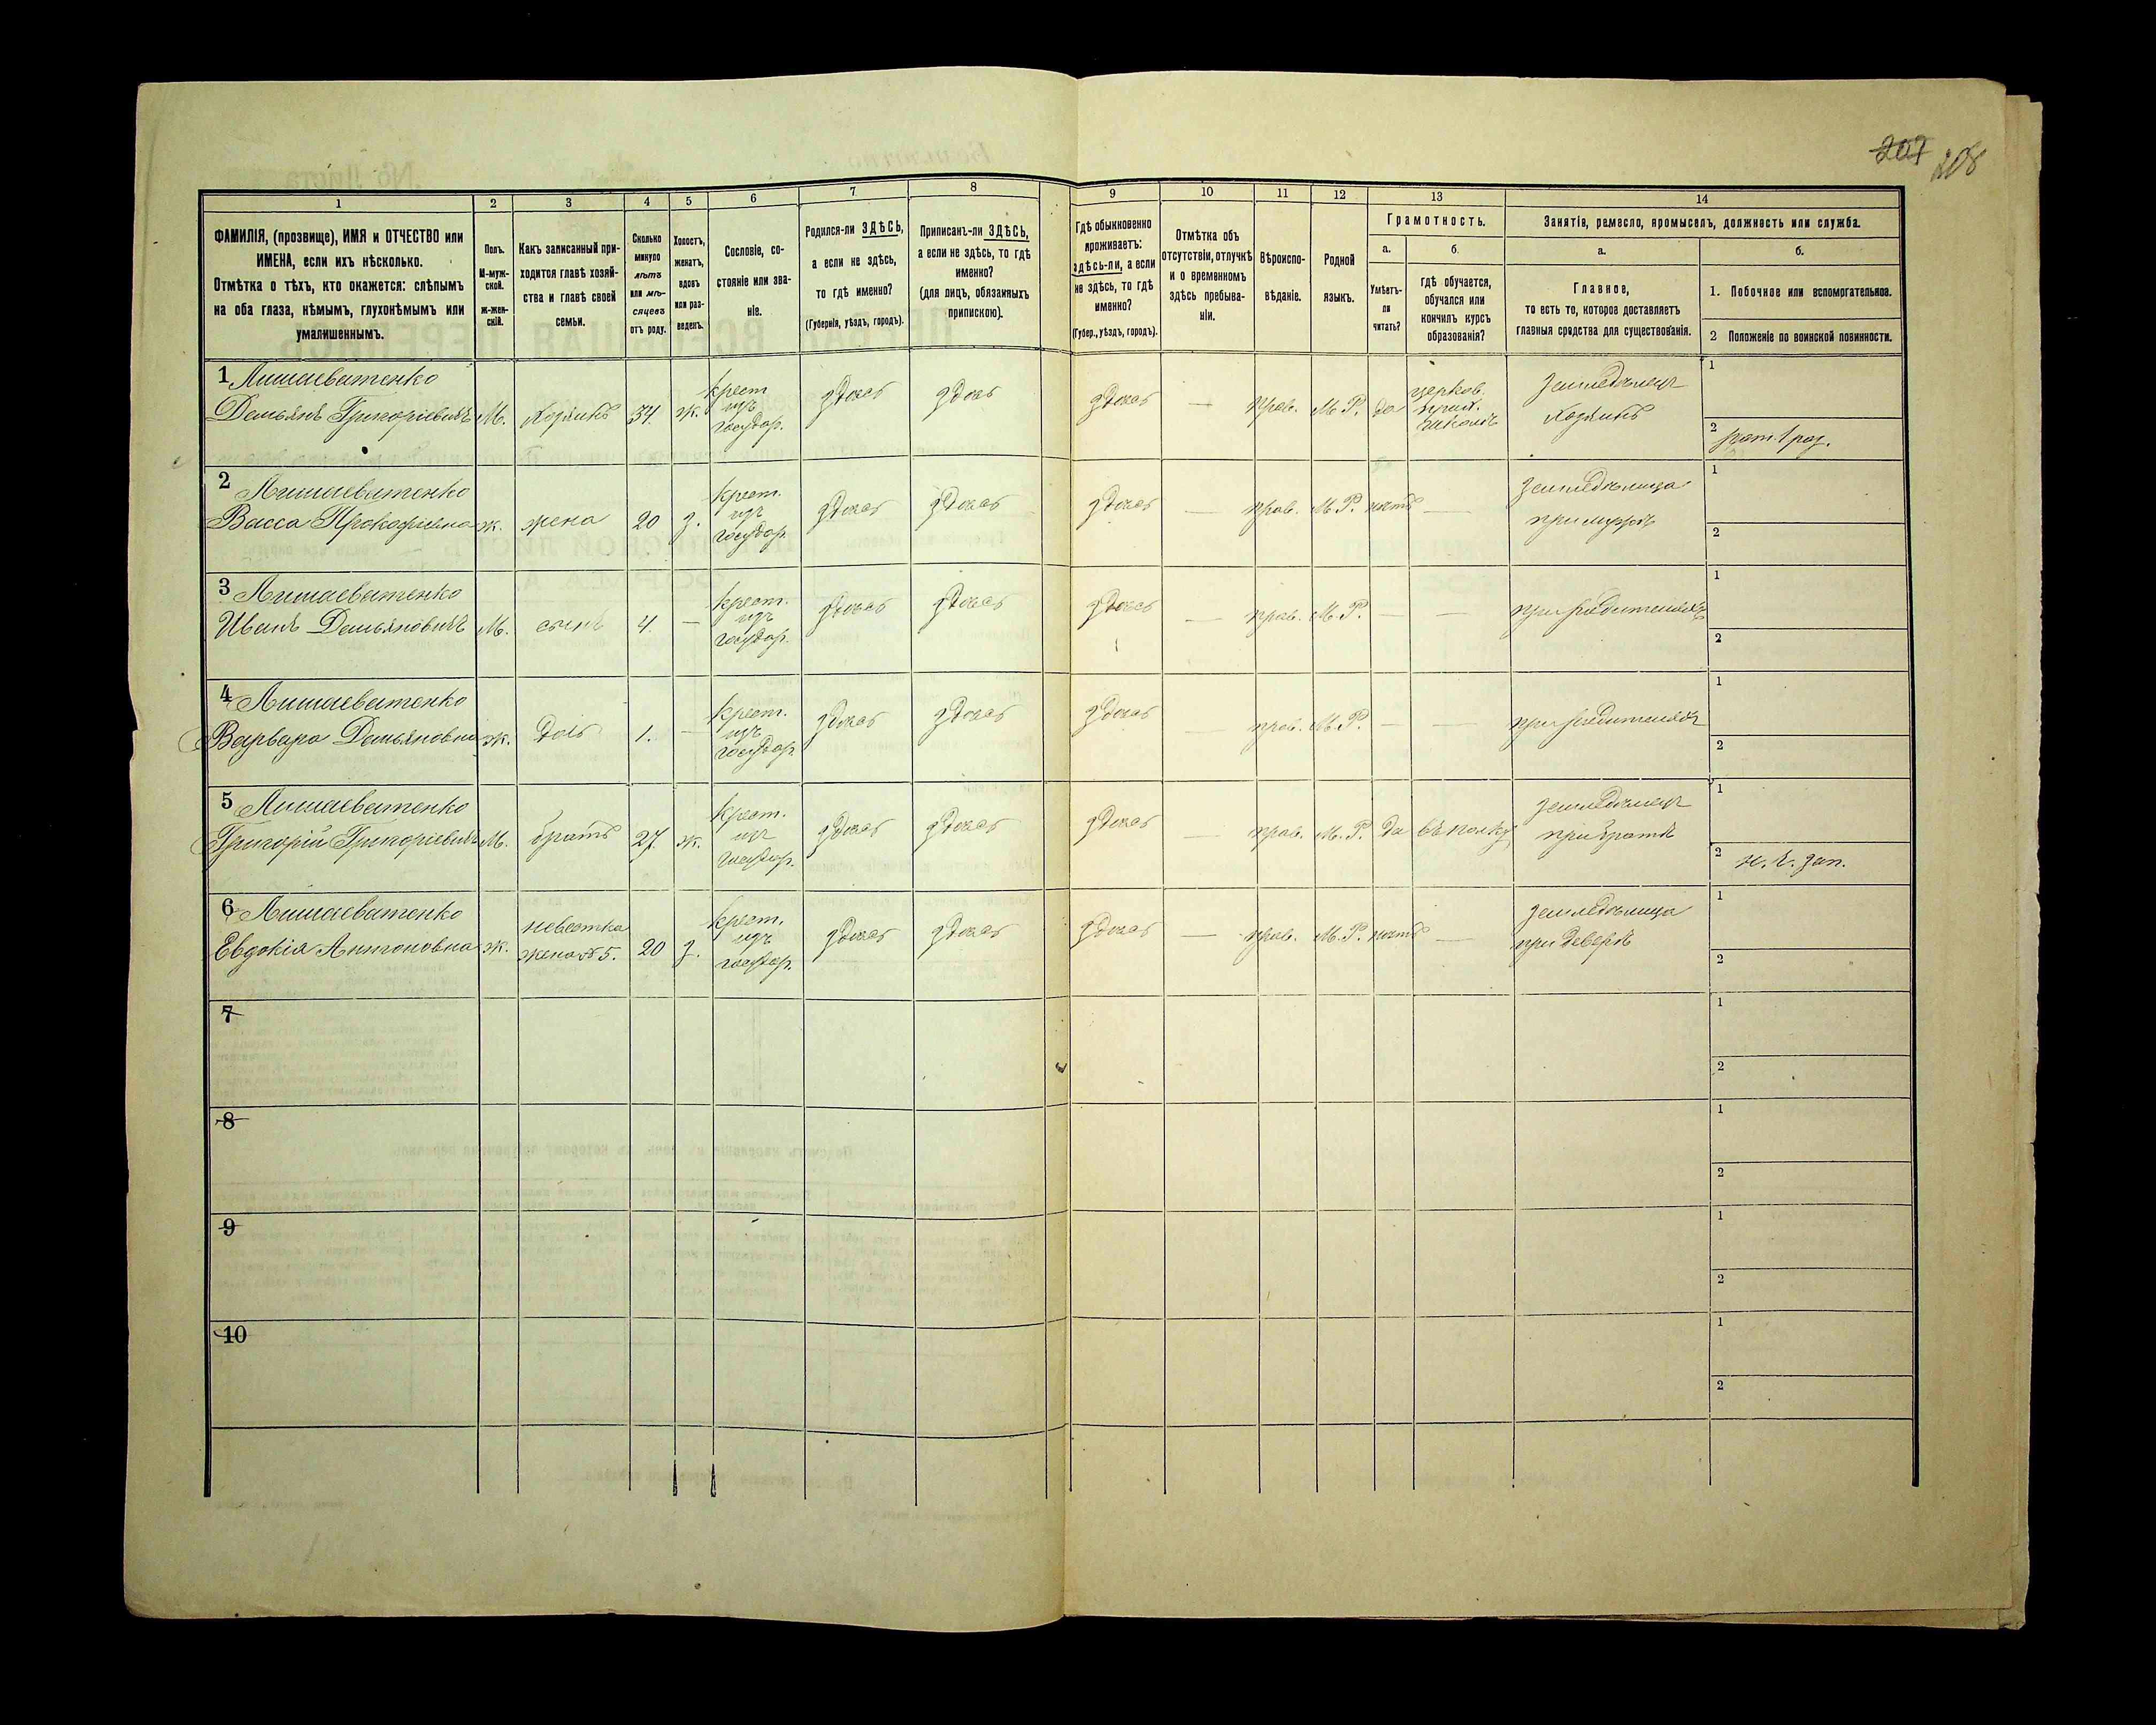 207 208
1 2 3 4 5 6 7 8 9 10 11 12 13 14
ФАМИЛІЯ, (прозвище), ИМЯ и ОТЧЕСТВО или
ИМЕНА, если ихъ нѣсколько.
Отмѣтка о тѣхъ, кто окажется: слѣпымъ
на оба глаза, нѣмымъ, глухонѣмымъ или
умалишеннымъ.
Полъ.
М-муж-
ской.
ж-жен-
скій.
Какъ записанный при-
ходится главѣ хозяй-
ства и главѣ своей
семьи.
Сколько
минуло
лѣтъ
или мѣ-
сяцевъ
отъ роду.
Холостъ,
женатъ,
вдовъ
или раз-
веденъ.
Сословіе, со-
стояніе или зва-
ніе.
Родился-ли ЗДѢСЬ,
а если не здѣсь,
то гдѣ именно?
(Губернія, уѣздъ, городъ).
Приписанъ-ли ЗДѢСЬ,
а если не здѣсь, то гдѣ
именно?
(для лицъ, обязанныхъ
припискою).
Гдѣ обыкновенно
проживаетъ:
здѣсь-ли, а если
не здѣсь, то гдѣ
именно?
(Губер., уѣздъ, городъ).
Отмѣтка объ
отсутствіи, отлучкѣ
и о временномъ
здѣсь пребыва-
ніи.
Вѣроиспо-
вѣданіе.
Родной
языкъ.
Грамотность.
а.
Умѣетъ-
ли
читать?
б.
Гдѣ обучается,
обучался или
кончилъ курсъ
образованія?
Занятіе, ремесло, промыселъ, должность или служба.
а.
Главное,
то есть то, которое доставляетъ
главныя средства для существованія.
б.
1. Побочное или вспомогательное.
2 Положеніе по воинской повинности.
1 Лишаеватенко
Демьянъ Григоріевичъ М. Хозяинъ 34. ж.
крест.
изъ
государ.
здѣсь здѣсь здѣсь — прав. М.Р. да
церков.
прих.
школѣ
земледѣлецъ
Хозяинъ
1
2 рат. 1 раз.
2 Лишаеватенко
Васса Прокофіевна ж. жена 20 з.
крест.
изъ
государ.
здѣсь здѣсь здѣсь — прав. М.Р. нѣтъ —
земледѣлица
при мужѣ
1
2
3 Лишаеватенко
Иванъ Демьяновичъ М. сынъ 4. —
крест.
изъ
государ.
здѣсь здѣсь здѣсь — прав. М.Р. — — при родителяхъ
1
2
4 Лишаеватенко
Варвара Демьяновна ж. дочь 1. —
крест.
изъ
государ.
здѣсь здѣсь здѣсь — прав. М.Р. — — при родителяхъ
1
2
5 Лишаеватенко
Григорій Григоріевичъ М. братъ 27. ж.
крест.
изъ
государ.
здѣсь здѣсь здѣсь — прав. М.Р. да въ полку
земледѣлецъ
при братѣ
1
2 н. ч. зап.
6 Лишаеватенко
Евдокія Антоновна ж.
невестка
жена №5. 20 з.
крест.
изъ
государ.
здѣсь здѣсь здѣсь — прав. М.Р. нѣтъ —
земледѣлица
при деверѣ
1
2
7
1
2
8
1
2
9
1
2
10
1
2